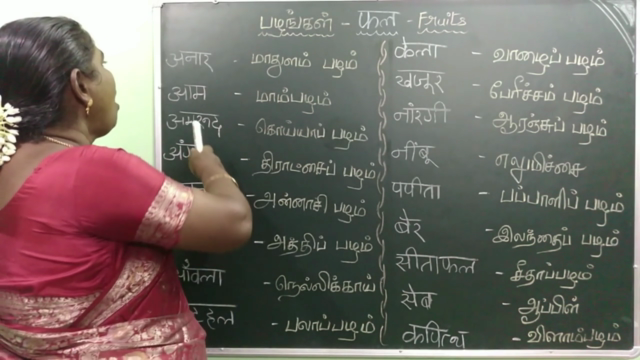 பழங்கள் - फल - Fruits
अनार - மாதுளம் பழம்
आम - மாம்பழம்
अमरूद - கொய்யாப் பழம்
அं - திராட்சைப் பழம்
- அன்னாசி பழம்
- அத்திப் பழம்
आंवला - நெல்லிக்காய்
- பலாப்பழம்
केला - வாழைப் பழம்
खजूर - பேரீச்சம் பழம்
नारंगी - ஆரஞ்சுப் பழம்
नींबू - எலுமிச்சை
पपीता - பப்பாளிப் பழம்
बेर - இலந்தைப் பழம்
सीताफल - சீதாப்பழம்
सेब - ஆப்பிள்
कपित्थ - விளாம்பழம்